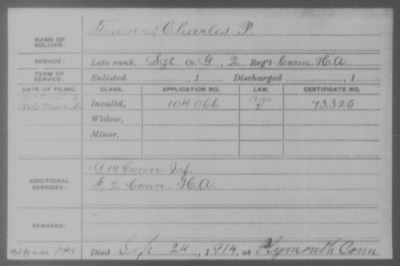 NAME OF SOLDIER: Travers, Charles P.
SERVICE: Late rank, Sgt Co. G, 2 Reg't Conn H.A.
TERM OF SERVICE: Enlisted , 1 Discharged , 1
DATE OF FILING. CLASS. APPLICATION NO. LAW. CERTIFICATE NO.
Invalid, 104 066 73.326
Widow,
Minor,
ADDITIONAL SERVICES: G 19 Conn Inf.
F. 2 Conn H.A.
REMARKS:
Died Sept 24, 1914, at Plymouth Conn